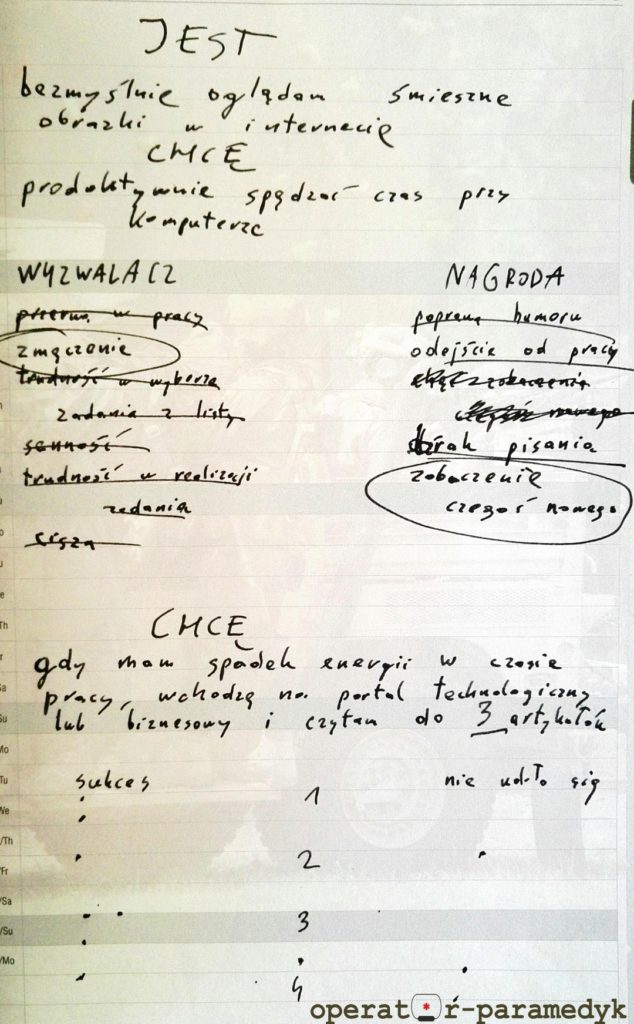 JEST
bezmyślnie oglądam śmieszne
obrazki w internecie
CHCĘ
produktywnie spędzać czas przy
komputerze
WYZWALACZ NAGRODA
przerwa w pracy poprawa humoru
zmęczenie odejście od pracy
trudność w wyborze chęć zobaczenia
zadania z listy nowego
senność brak pisania
trudność w realizacji zobaczenie
zadania czegoś nowego
cisza
CHCĘ
gdy mam spadek energii w czasie
pracy, wchodzę na portal technologiczny
lub biznesowy i czytam do 3 artykułów
sukces 1 nie udało się
2
3
4
Th
Sa
Su
Mo
Tu
We
/Th
/Fr
/Sa
/Su
/Mo
operat r-paramedyk